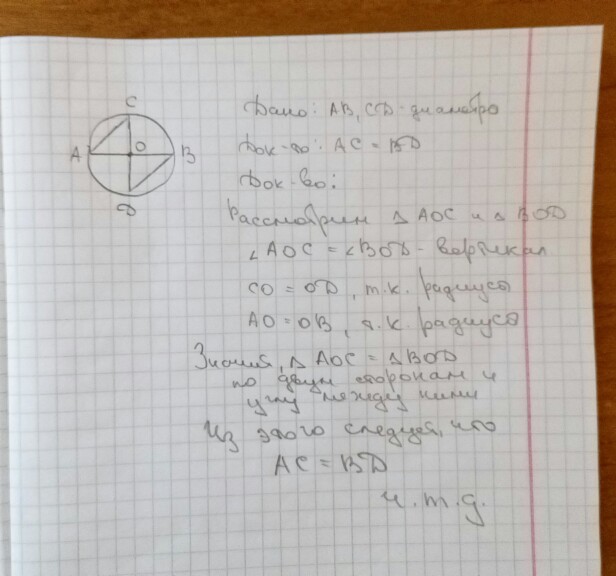 C
A O B
D
Дано: AB, CD - диаметры
Док-ть: AC = BD
Док-во:
Рассмотрим △ AOC и △ BOD
∠AOC = ∠BOD - вертикал
CO = OD, т.к. радиусы
AO = OB, т.к. радиусы
Значит, △ AOC = △ BOD
по двум сторонам и
углу между ними
Из этого следует, что
AC = BD
ч.т.д.